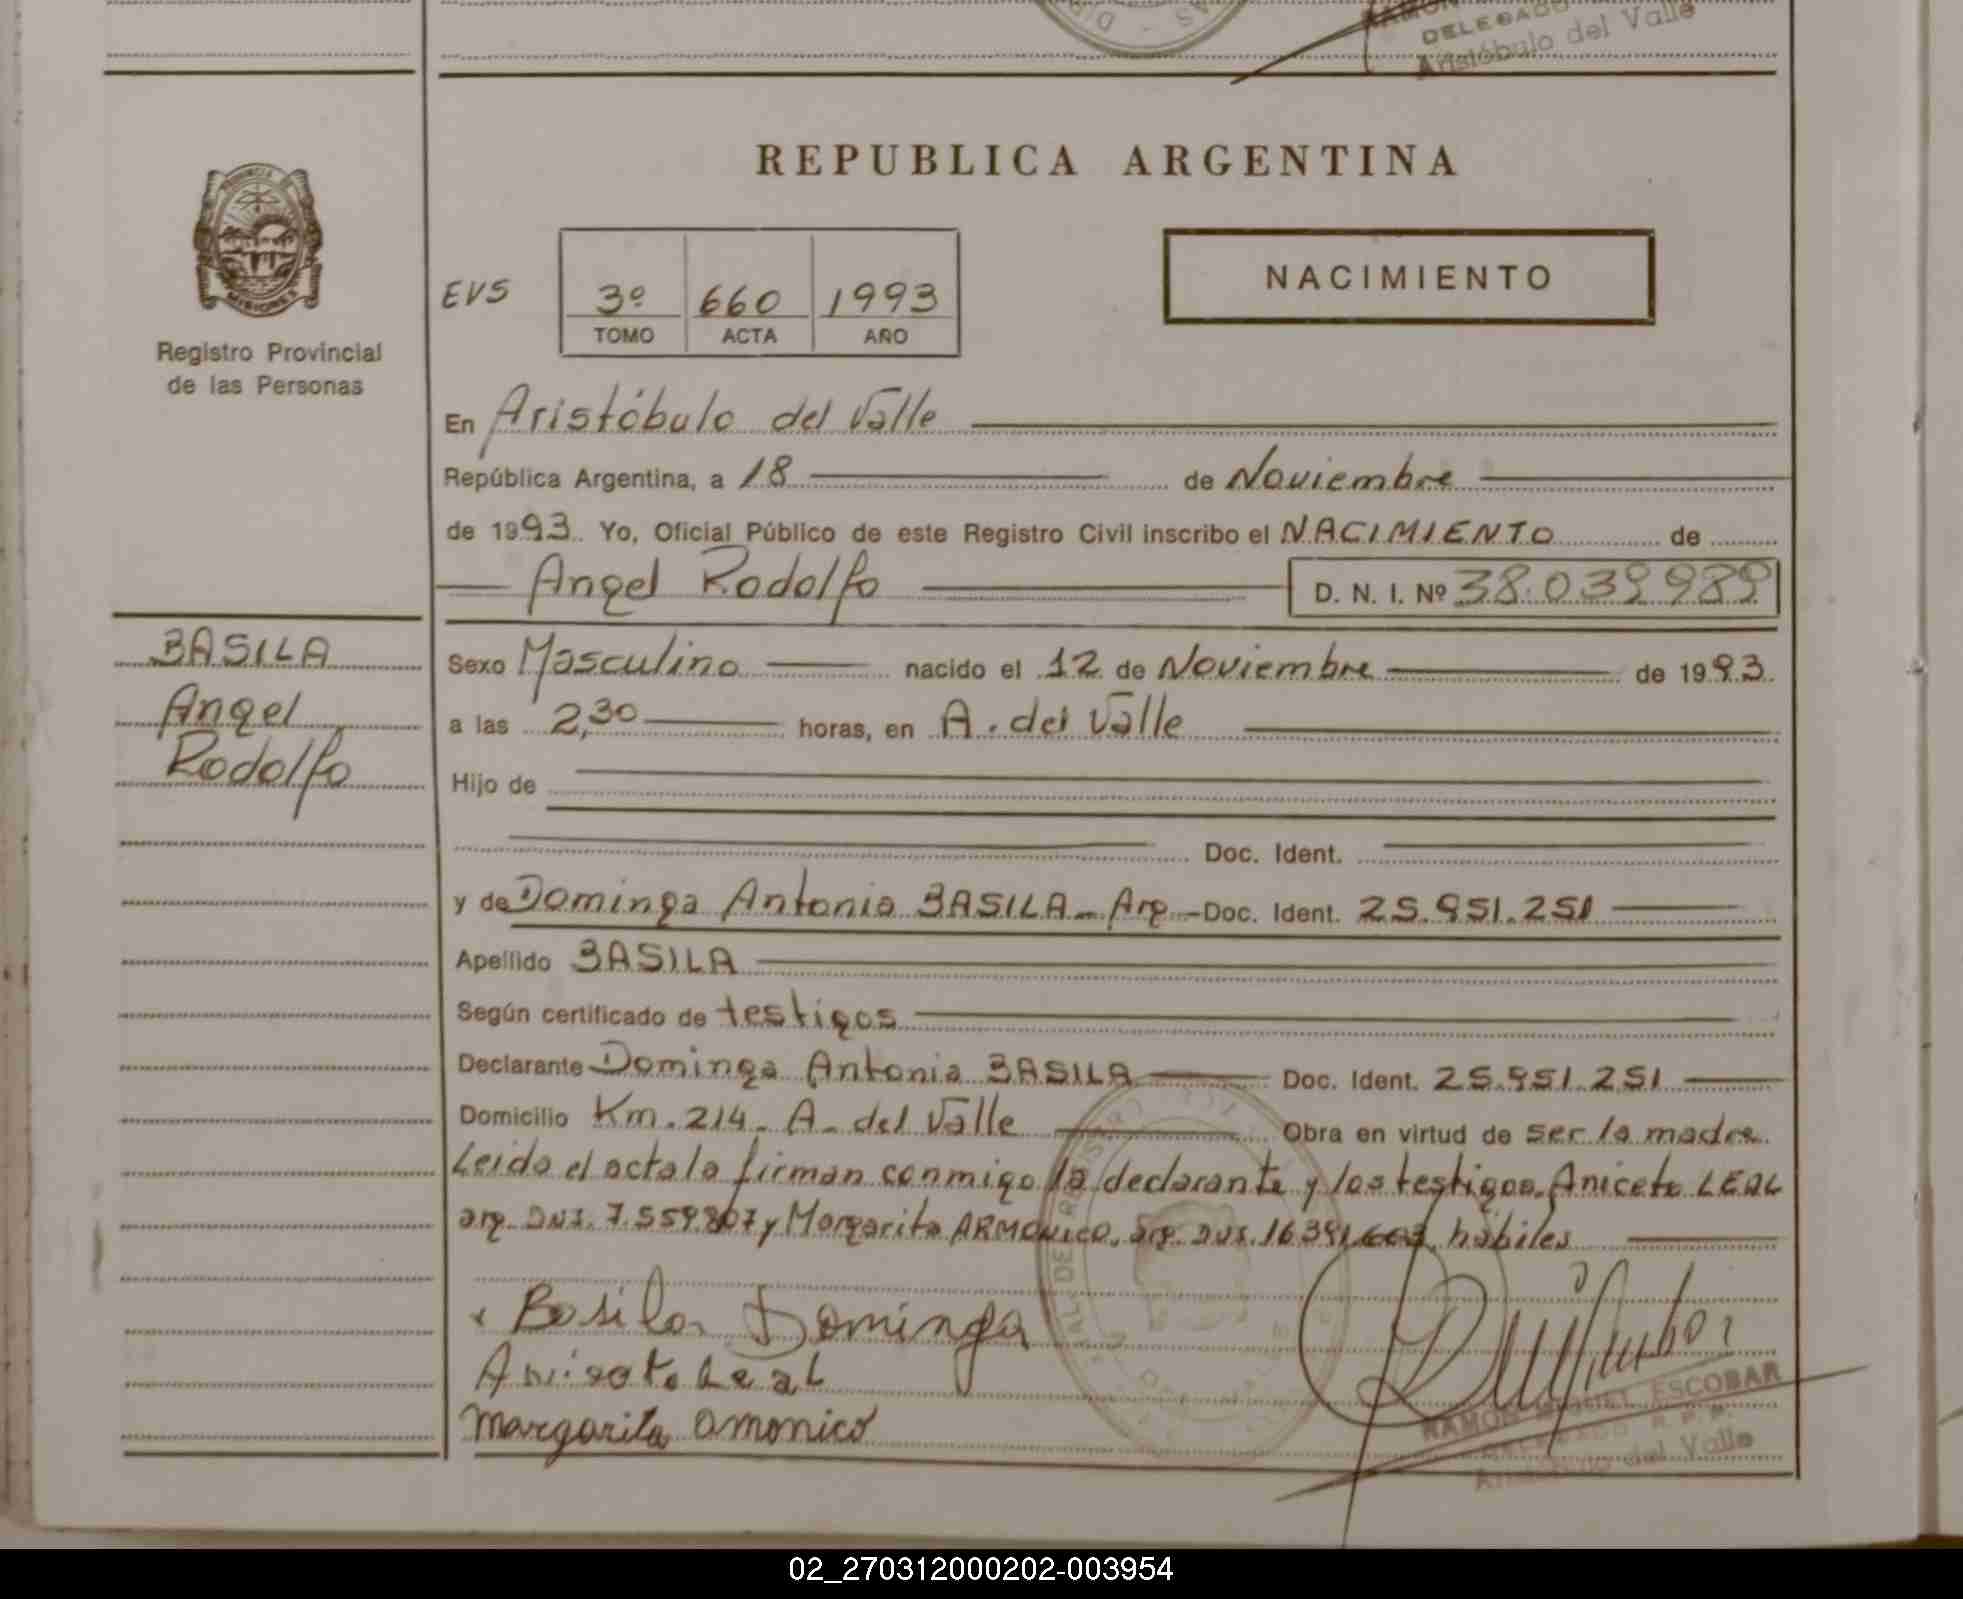 DELEGADO
Aristóbulo del Valle
REPUBLICA ARGENTINA
PROVINCIA DE
MISIONES
Registro Provincial
de las Personas
EVS
3º 660 1993
TOMO ACTA AÑO
NACIMIENTO
En Aristóbulo del Valle
República Argentina, a 18 de Noviembre
de 1993. Yo, Oficial Público de este Registro Civil inscribo el NACIMIENTO de
Angel Rodolfo D. N. I. Nº 38.039.989
BASILA
Angel
Rodolfo
Sexo Masculino nacido el 12 de Noviembre de 1993.
a las 2,30 horas, en A. del Valle
Hijo de
Doc. Ident.
y de Dominga Antonia BASILA - Arg - Doc. Ident. 25.951.251
Apellido BASILA
Según certificado de testigos
Declarante Dominga Antonia BASILA Doc. Ident. 25.951.251
Domicilio Km. 214 - A. del Valle Obra en virtud de ser la madre.
Leida el acta la firman conmigo la declarante y los testigos, Aniceto LEAL
arg. DNI. 7.559.807 y Margarita ARMONICO, arg. DNI. hábiles
x Basila Dominga
Aniseto Leal
Margarita Omonico
RAMON MIGUEL ESCOBAR
DELEGADO R. P. P.
Aristóbulo del Valle
02_270312000202-003954